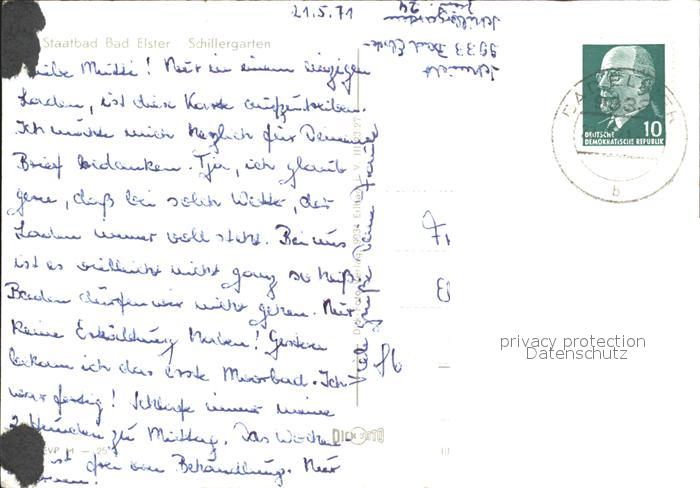 21.5.71
Schillergarten
9933 Bad Elster
Staatbad Bad Elster Schillergarten
Liebe Mutti! Nur in einem einzigen
Laden, ist diese Karte aufzutreiben.
Ich möchte mich herzlich für Deinen
Brief bedanken. Tja, ich glaub
gern, daß bei solch Wetter, der
Laden immer voll steht. Bei uns
ist es vielleicht nicht ganz so heiß.
Baden dürfen wir nicht gehen. Nur
keine Erkältung haben! Gestern
bekam ich das erste Moorbad. Ich
war fertig! Schlafe immer meine
2 Stunden zu Mittag. Das Wochen
ist frei von Behandlung. Nur
Viele Grüße Deine
DEUTSCHE
DEMOKRATISCHE REPUBLIK
10
BAD ELSTER
9933
b
EVP M -,25
privacy protection
Datenschutz